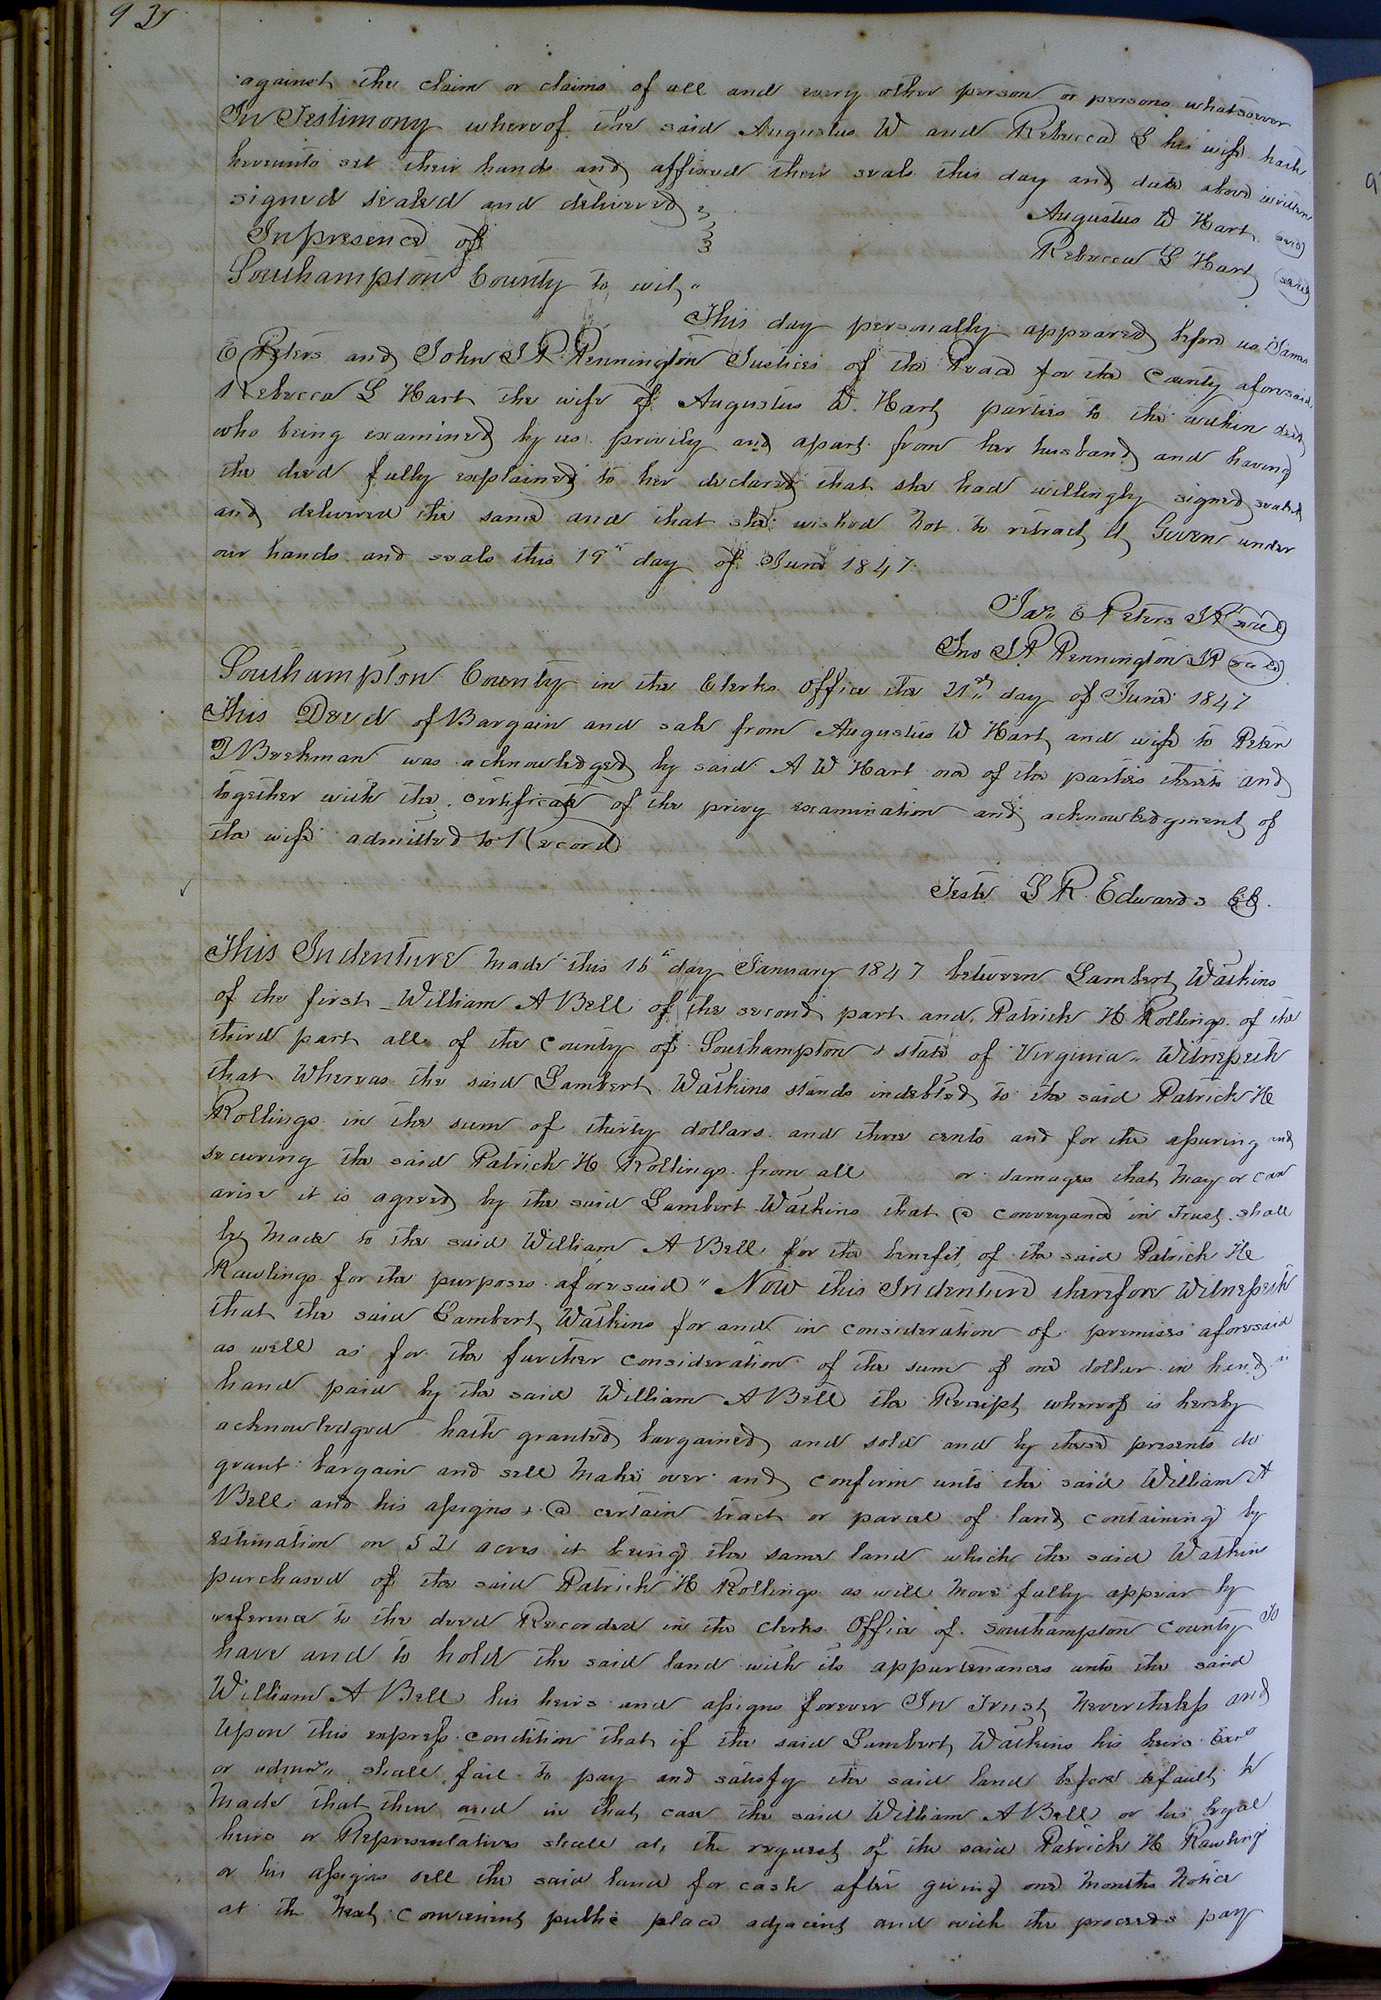 92
against the claim or claims of all and every other person or persons whatsoever
In Testimony whereof the said Augustus W and Rebecca L his wife hath
hereunto set their hands and affixed their seals this day and date above written
signed sealed and delivered
Augustus W Hart seal
In presence of
Rebecca L Hart seal
Southampton County to wit,,
This day personally appeared before us James
E Peters and John S P. Pennington Justices of the Peace for the County aforesaid
Rebecca L Hart the wife of Augustus W. Hart parties to the within deed
who being examined by us privily and apart from her husband and having
the deed fully explained to her declared that she had willingly signed sealed
and delivered the same and that she wished not to retract it Given under
our hands and seals this 19th day of June 1847.
Jas. E Peters JP seal
Jno S.P. Pennington JP seal
Southampton County in the Clerks office the 21st day of June 1847
This Deed of Bargain and sale from Augustus W Hart and wife to Peter
J Beekman was acknowledged by said A W Hart one of the parties thereto and
together with the certificate of the privy examination and acknowledgment of
the wife admitted to Record
Teste L R Edwards CC.
This Indenture made this 16th day January 1847 between Lambert Watkins
of the first William A Bell of the second part and Patrick H Rollings of the
third part all of the county of Southampton & state of Virginia,, Witnesseth
that Whereas the said Lambert Watkins stands indebted to the said Patrick H
Rollings in the sum of thirty dollars and three cents and for the assuring and
securing the said Patrick H Rollings from all or damages that may or can
arise it is agreed by the said Lambert Watkins that a conveyance in trust shall
be made to the said William A Bell for the benefit of the said Patrick H
Rawlings for the purposes aforesaid,, Now this Indenture therefore Witnesseth
that the said Lambert Watkins for and in consideration of premises aforesaid
as well as for the further consideration of the sum of one dollar in hand in
hand paid by the said William A Bell the Receipt whereof is hereby
acknowledged hath granted bargained and sold and by these presents do
grant bargain and sell make over and confirm unto the said William A
Bell and his assigns & a certain tract or parcel of land containing by
estimation on 52 acres it being the same land which the said Watkins
purchased of the said Patrick H Rollings as will more fully appear by
reference to the deed Recorded in the clerks Office of Southampton County To
have and to hold the said land with its appurtenances unto the said
William A Bell his heirs and assigns forever In Trust nevertheless and
upon this express condition that if the said Lambert Watkins his heirs Exrs
or admrs,, shall fail to pay and satisfy the said land before default be
made that then and in that case the said William A Bell or his legal
heirs or Representatives shall at the request of the said Patrick H Rawlings
or his assigns sell the said land for cash after giving one months notice
at the next convenient public place adjacent and with the proceeds pay